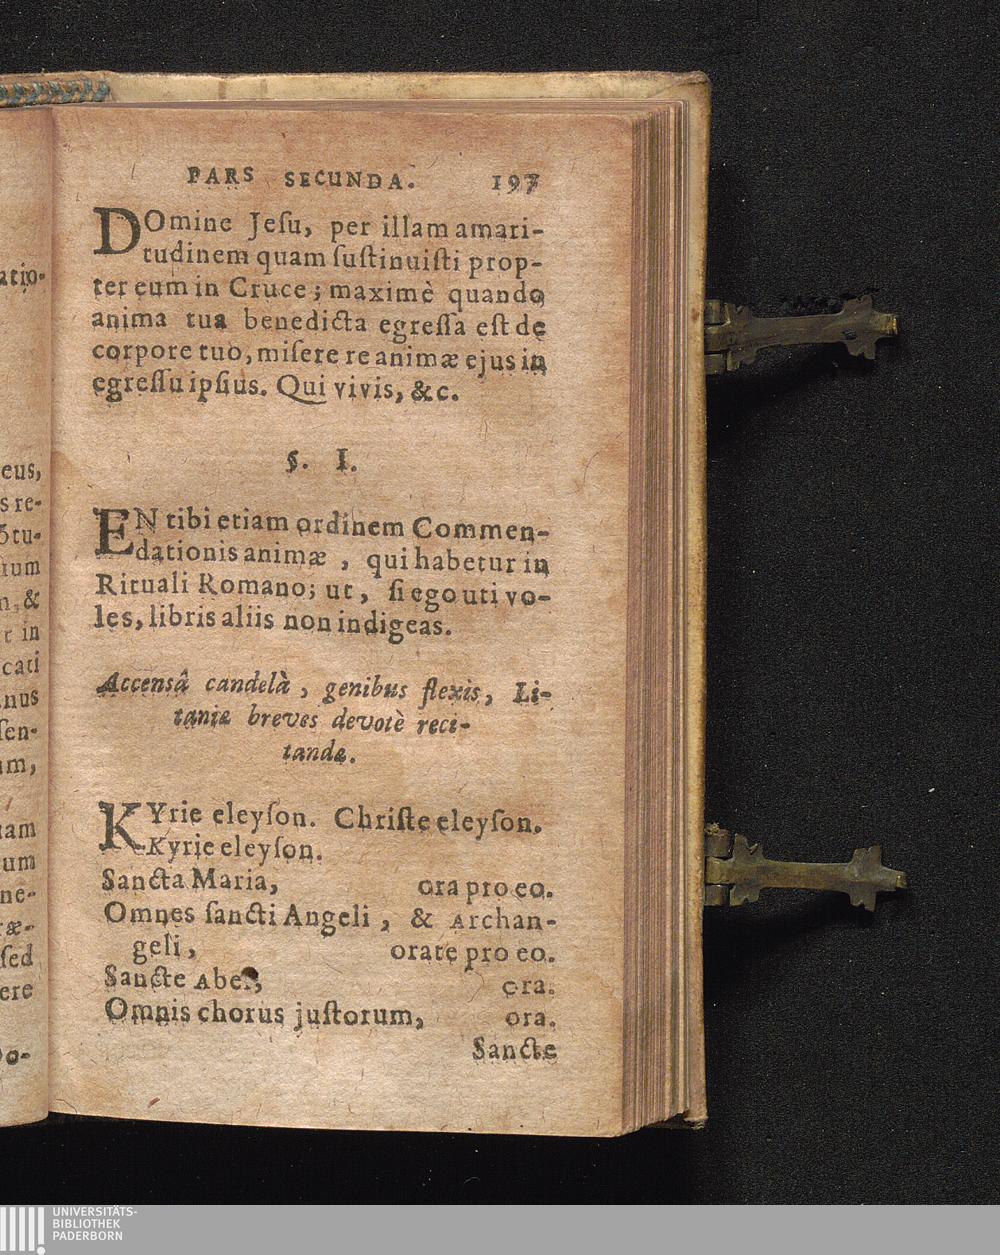 PARS SECUNDA. 197
DOmine Jeſu, per illam amari-
tudinem quam ſuſtinuiſti prop-
ter eum in Cruce; maximè quando
anima tua benedicta egreſſa eſt de
corpore tuo, miſere re animæ ejus in
egreſſu ipſius. Qui vivis, &c.
§. I.
EN tibi etiam ordinem Commen-
dationis animæ, qui habetur in
Rituali Romano; ut, ſi ego uti vo-
les, libris aliis non indigeas.
Accensâ candelà, genibus flexis, Li-
taniæ breves devotè reci-
tandæ.
KYrie eleyſon. Chriſte eleyſon.
Kyrie eleyſon.
Sancta Maria, ora pro eo.
Omnes ſancti Angeli, & Archan-
geli, orate pro eo.
Sancte Abel, ora.
Omnis chorus juſtorum, ora.
Sancte
atio-
eus,
s re-
õtu-
ium
n, &
t in
cati
nus
ſen-
um,
tam
um
ne-
ræ-
ſed
ere
Do-
UNIVERSITÄTS-
BIBLIOTHEK
PADERBORN